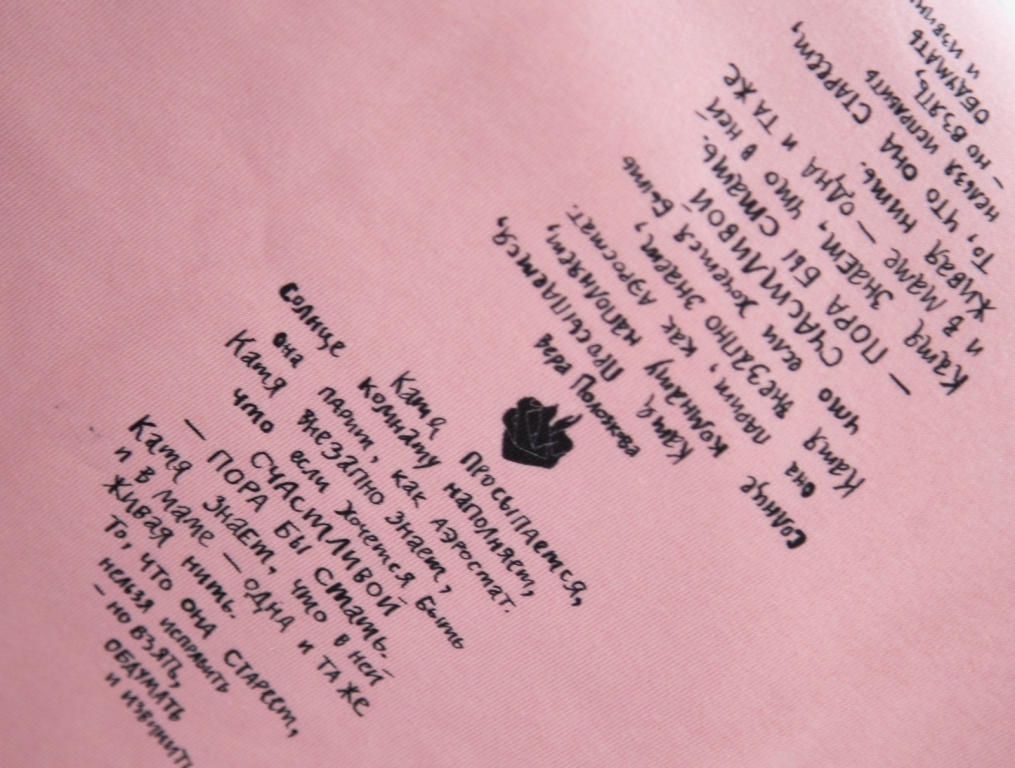 Катя просыпается,
Солнце комнату наполняет,
она парит, как аэростат.
Катя внезапно знает,
что если хочется быть
счастливой
— пора бы стать.
Катя знает, что в ней
и в маме — одна и та же
живая нить.
То, что она стареет,
нельзя исправить
— но взять,
обдумать
и извинить
Вера Полозкова
Катя просыпается,
Солнце комнату наполняет,
она парит, как аэростат.
Катя внезапно знает,
что если хочется быть
счастливой
— пора бы стать.
Катя знает, что в ней
и в маме — одна и та же
живая нить.
То, что она стареет,
нельзя исправить
— но взять,
обдумать
и